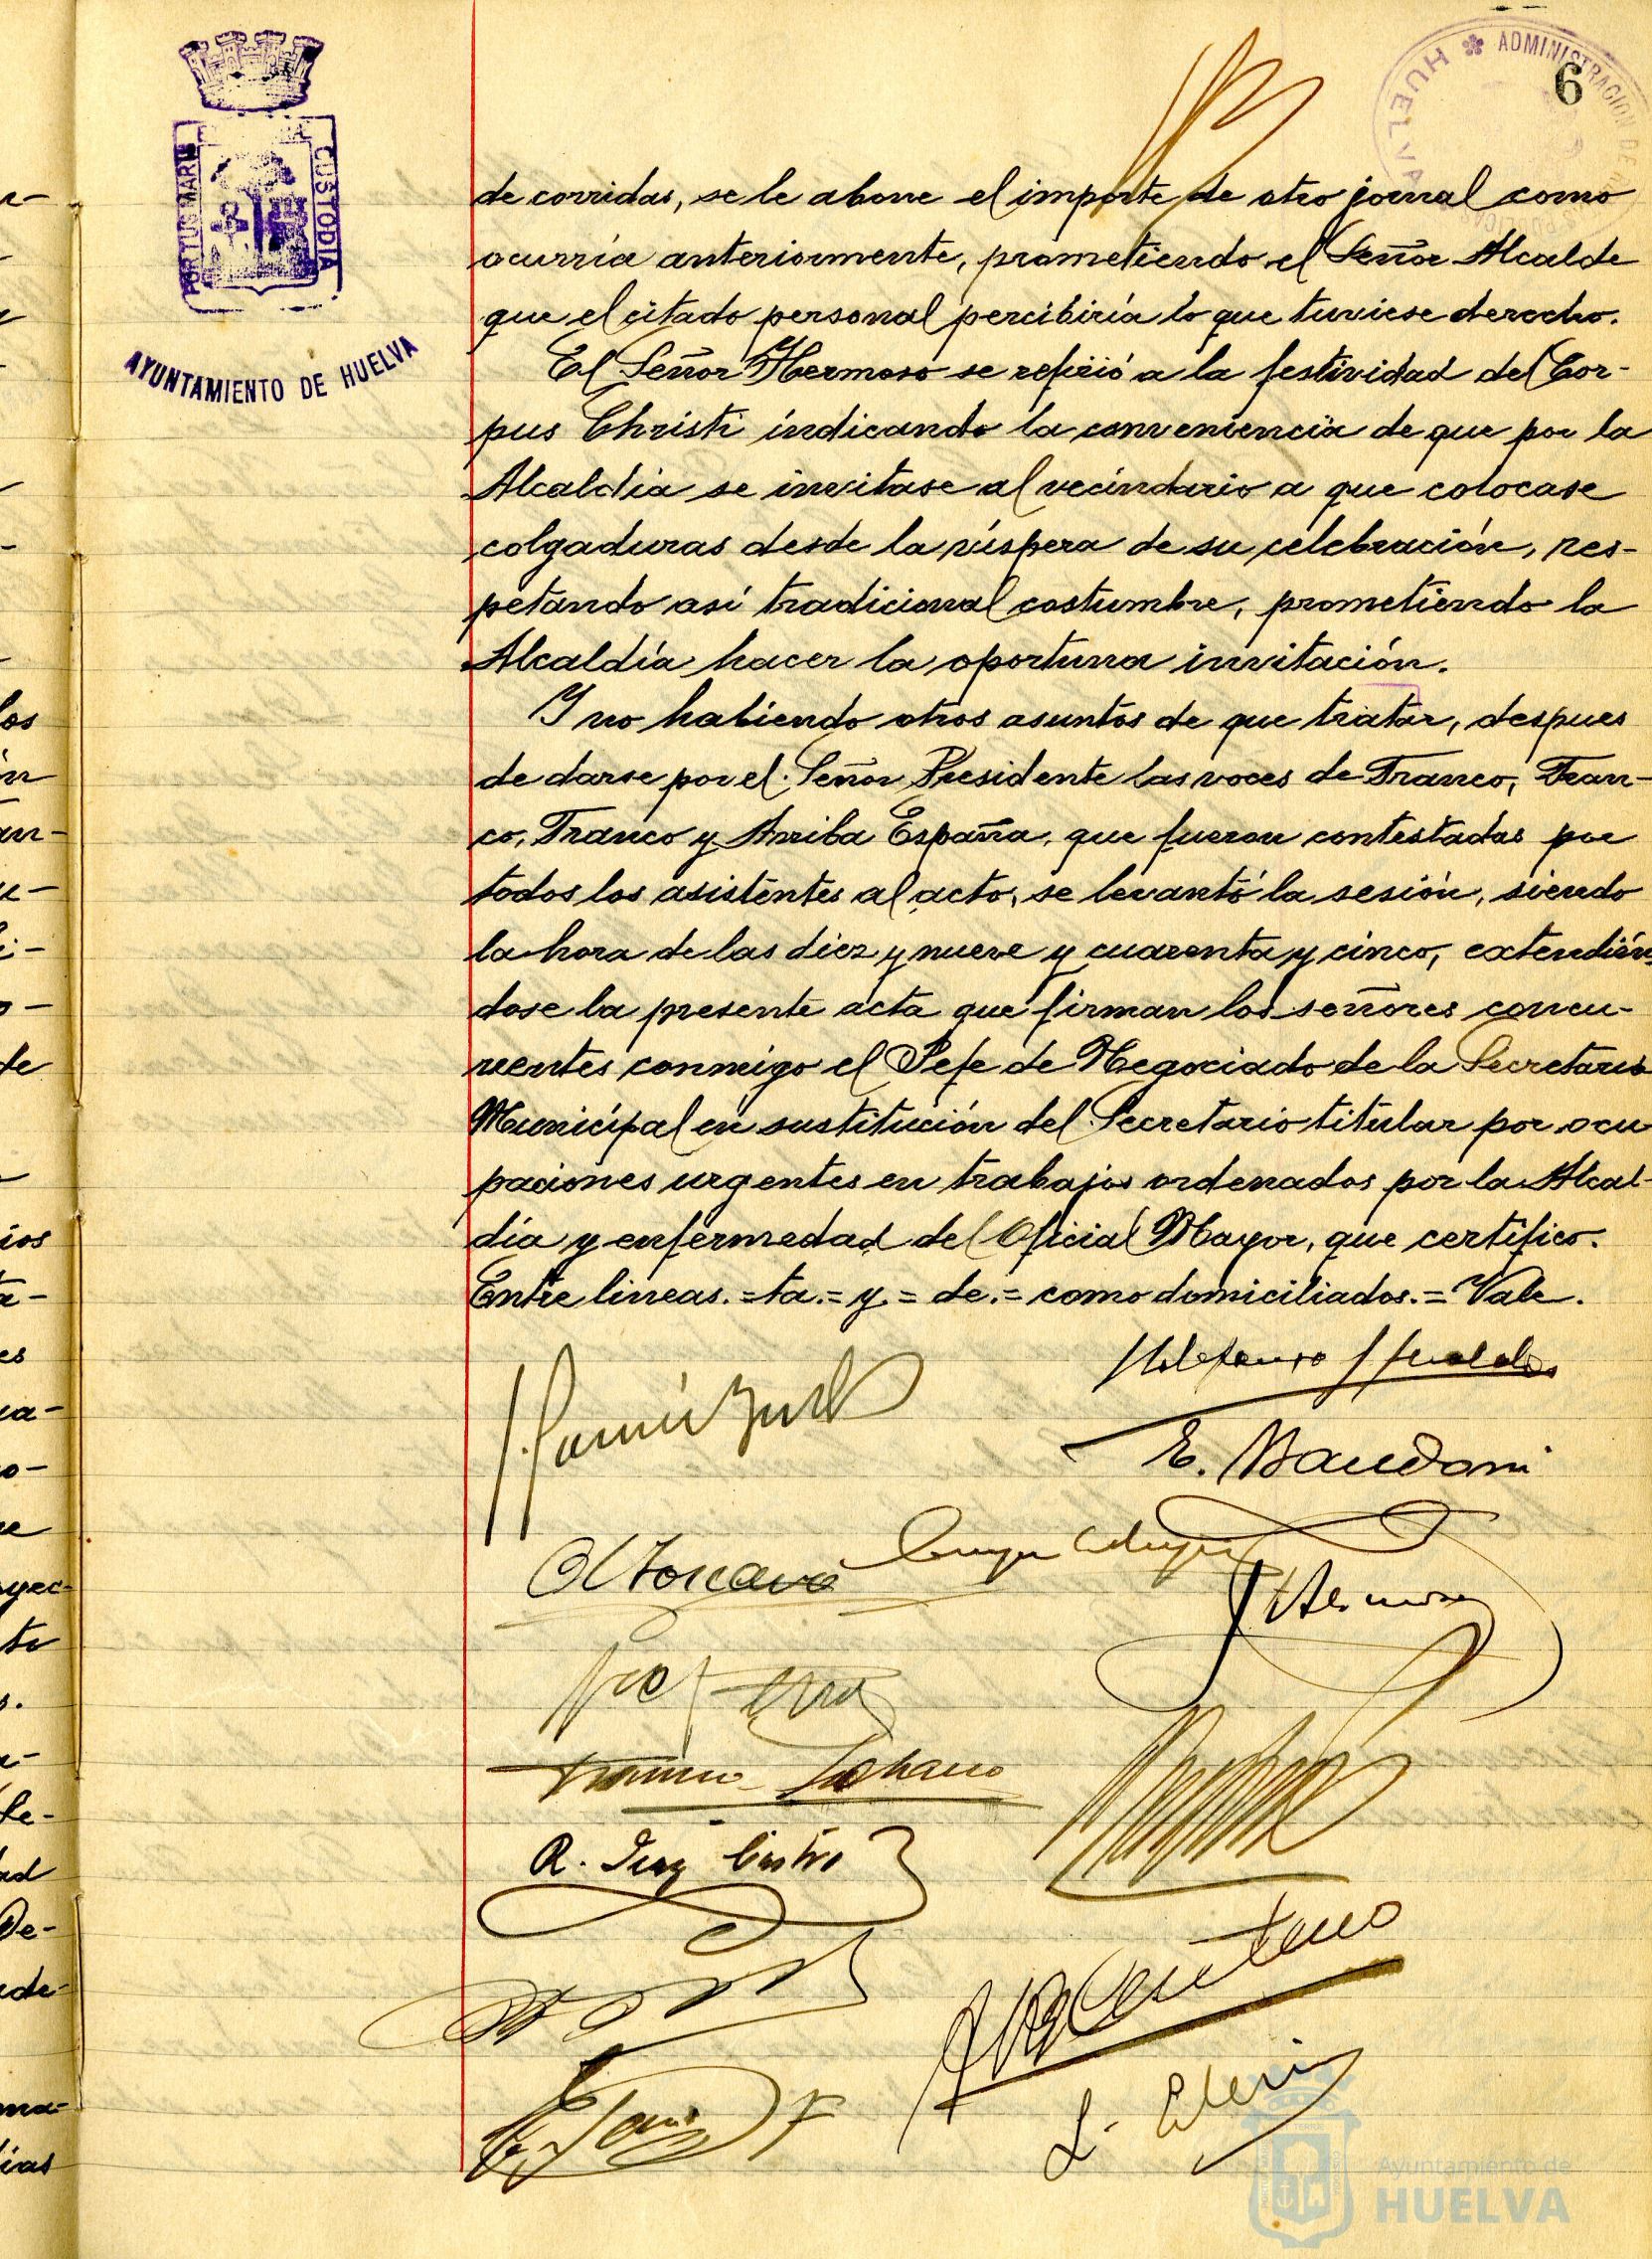 PORTUS MARIS
CUSTODIA
AYUNTAMIENTO DE HUELVA
ADMINISTRACION DE
HUELVA
6
de corridas, se le abone el importe de otro jornal como
ocurría anteriormente, prometiendo el Señor Alcalde
que el citado personal percibiría lo que tuviese derecho.
El Señor Hermoso se refirió a la festividad del Cor-
pus Christi indicando la conveniencia de que por la
Alcaldía se invitase al vecindario a que colocase
colgaduras desde la víspera de su celebración, res-
petándo así tradicional costumbre, prometiendo la
Alcaldía hacer la oportuna invitación.
Y no habiendo otros asuntos de que tratar, despues
de darse por el Señor Presidente las voces de Franco, Fran-
co, Franco y Arriba España, que fueron contestadas por
todos los asistentes al acto, se levantó la sesión, siendo
la hora de las diez y nueve y cuarenta y cinco, extendién-
dose la presente acta que firman los señores concu-
rrentes conmigo el Jefe de Negociado de la Secretaría
Municipal en sustitución del Secretario titular por ocu
paciones urgentes en trabajos ordenados por la Alcal-
día y enfermedad del Oficial Mayor, que certifico.
Entre lineas.=ta.=y=de.=como domiciliados.=Vale.
E. Mandoni
J Hermoso
R. Diaz Castro
Ayuntamiento de
HUELVA